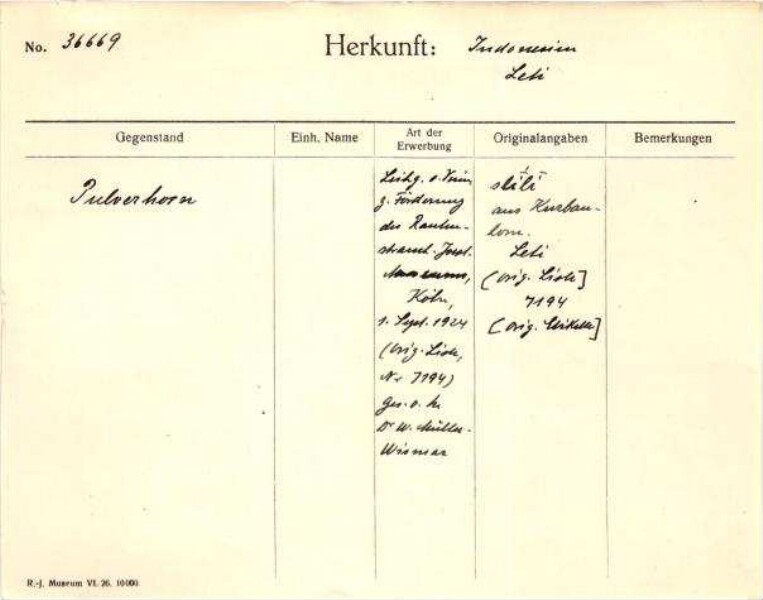 No. 36669
Herkunft: Indonesien
Leti
Gegenstand
Einh. Name
Art der
Erwerbung
Originalangaben
Bemerkungen
Pulverhorn
Leihg. v. Verein
z. Förderung
des Rauten-
strauch-Joest
Museums,
Köln,
1. Sept. 1924
(orig. Liste,
Nr 7194)
Ges. v. h.
Dr W. Müller-
Wismar
aus Kurbau-
horn.
Leti
(orig. Liste]
7194
[orig. Etikette]
R.-J. Museum VI. 26. 10 000.